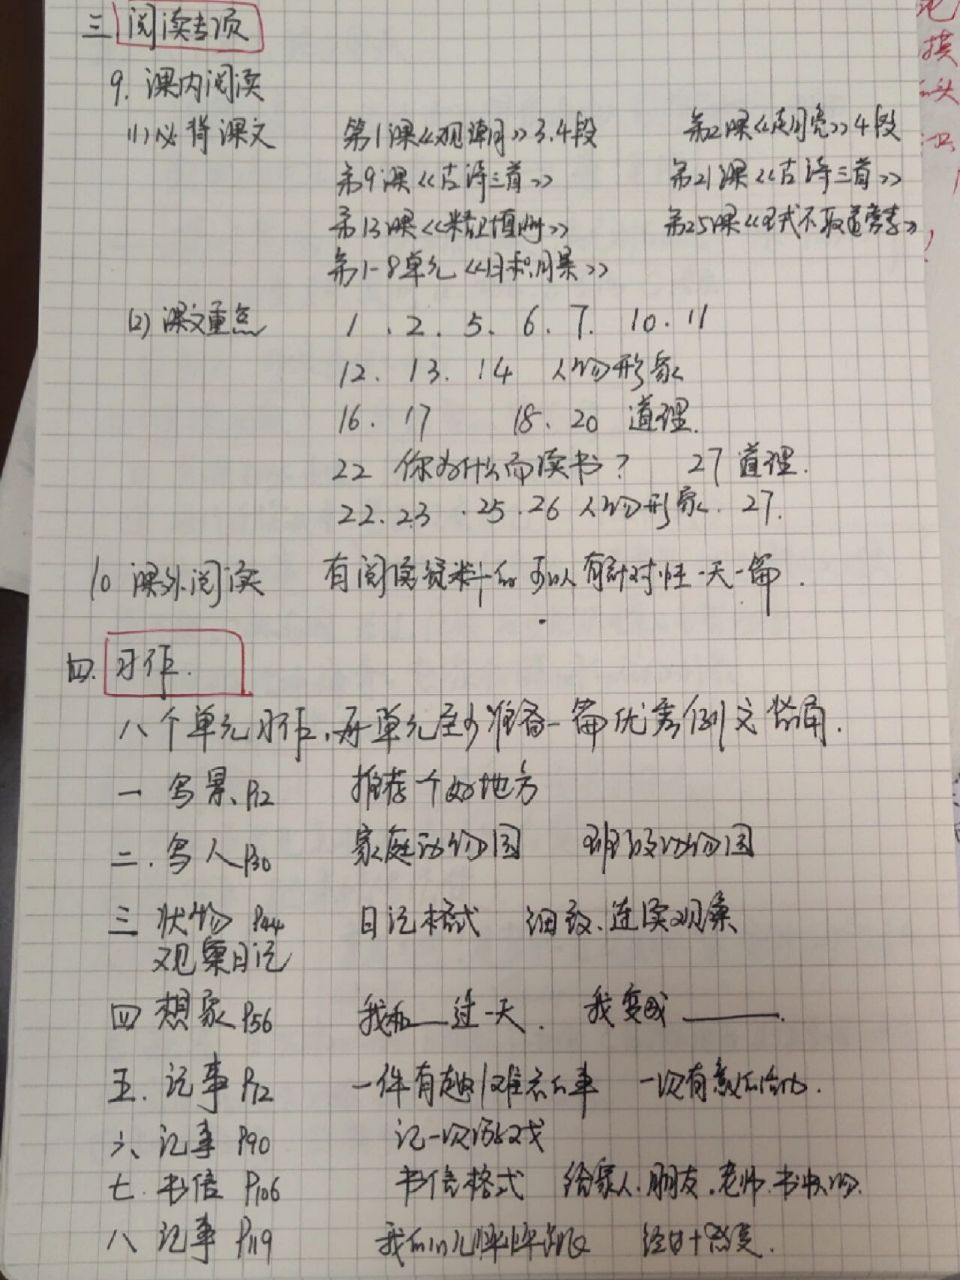 三 阅读专项
9. 课内阅读
(1) 必背课文 第1课《观潮》3.4段 第2课《走月亮》4段
第9课《古诗三首》 第21课《古诗三首》
第13课《精卫填海》 第25课《王戎不取道旁李》
第1-8单元《日积月累》
(2) 课文重点 1.2.5.6.7.10.11
12.13.14 人物形象
16.17 18.20 道理.
22 你为什么而读书? 27道理.
22.23.25.26人物形象.27.
10 课外阅读 有阅读资料的可以有针对性一天一篇.
四.习作.
八个单元习作,每单元至少准备一篇优秀例文背诵.
一 写景.P12 推荐个好地方
二.写人P30 家庭动物园 班级动物园
三 状物 P44 日记格式 细致.连续观察
观察日记
四 想象P56 我和___过一天. 我变成______.
五.记事P72 一件有趣/难忘的事 一次有意的活动.
六.记事P90 记一次游戏
七.书信P106 书信格式 给家人.朋友.老师.
八 记事P119 我的心儿怦怦跳